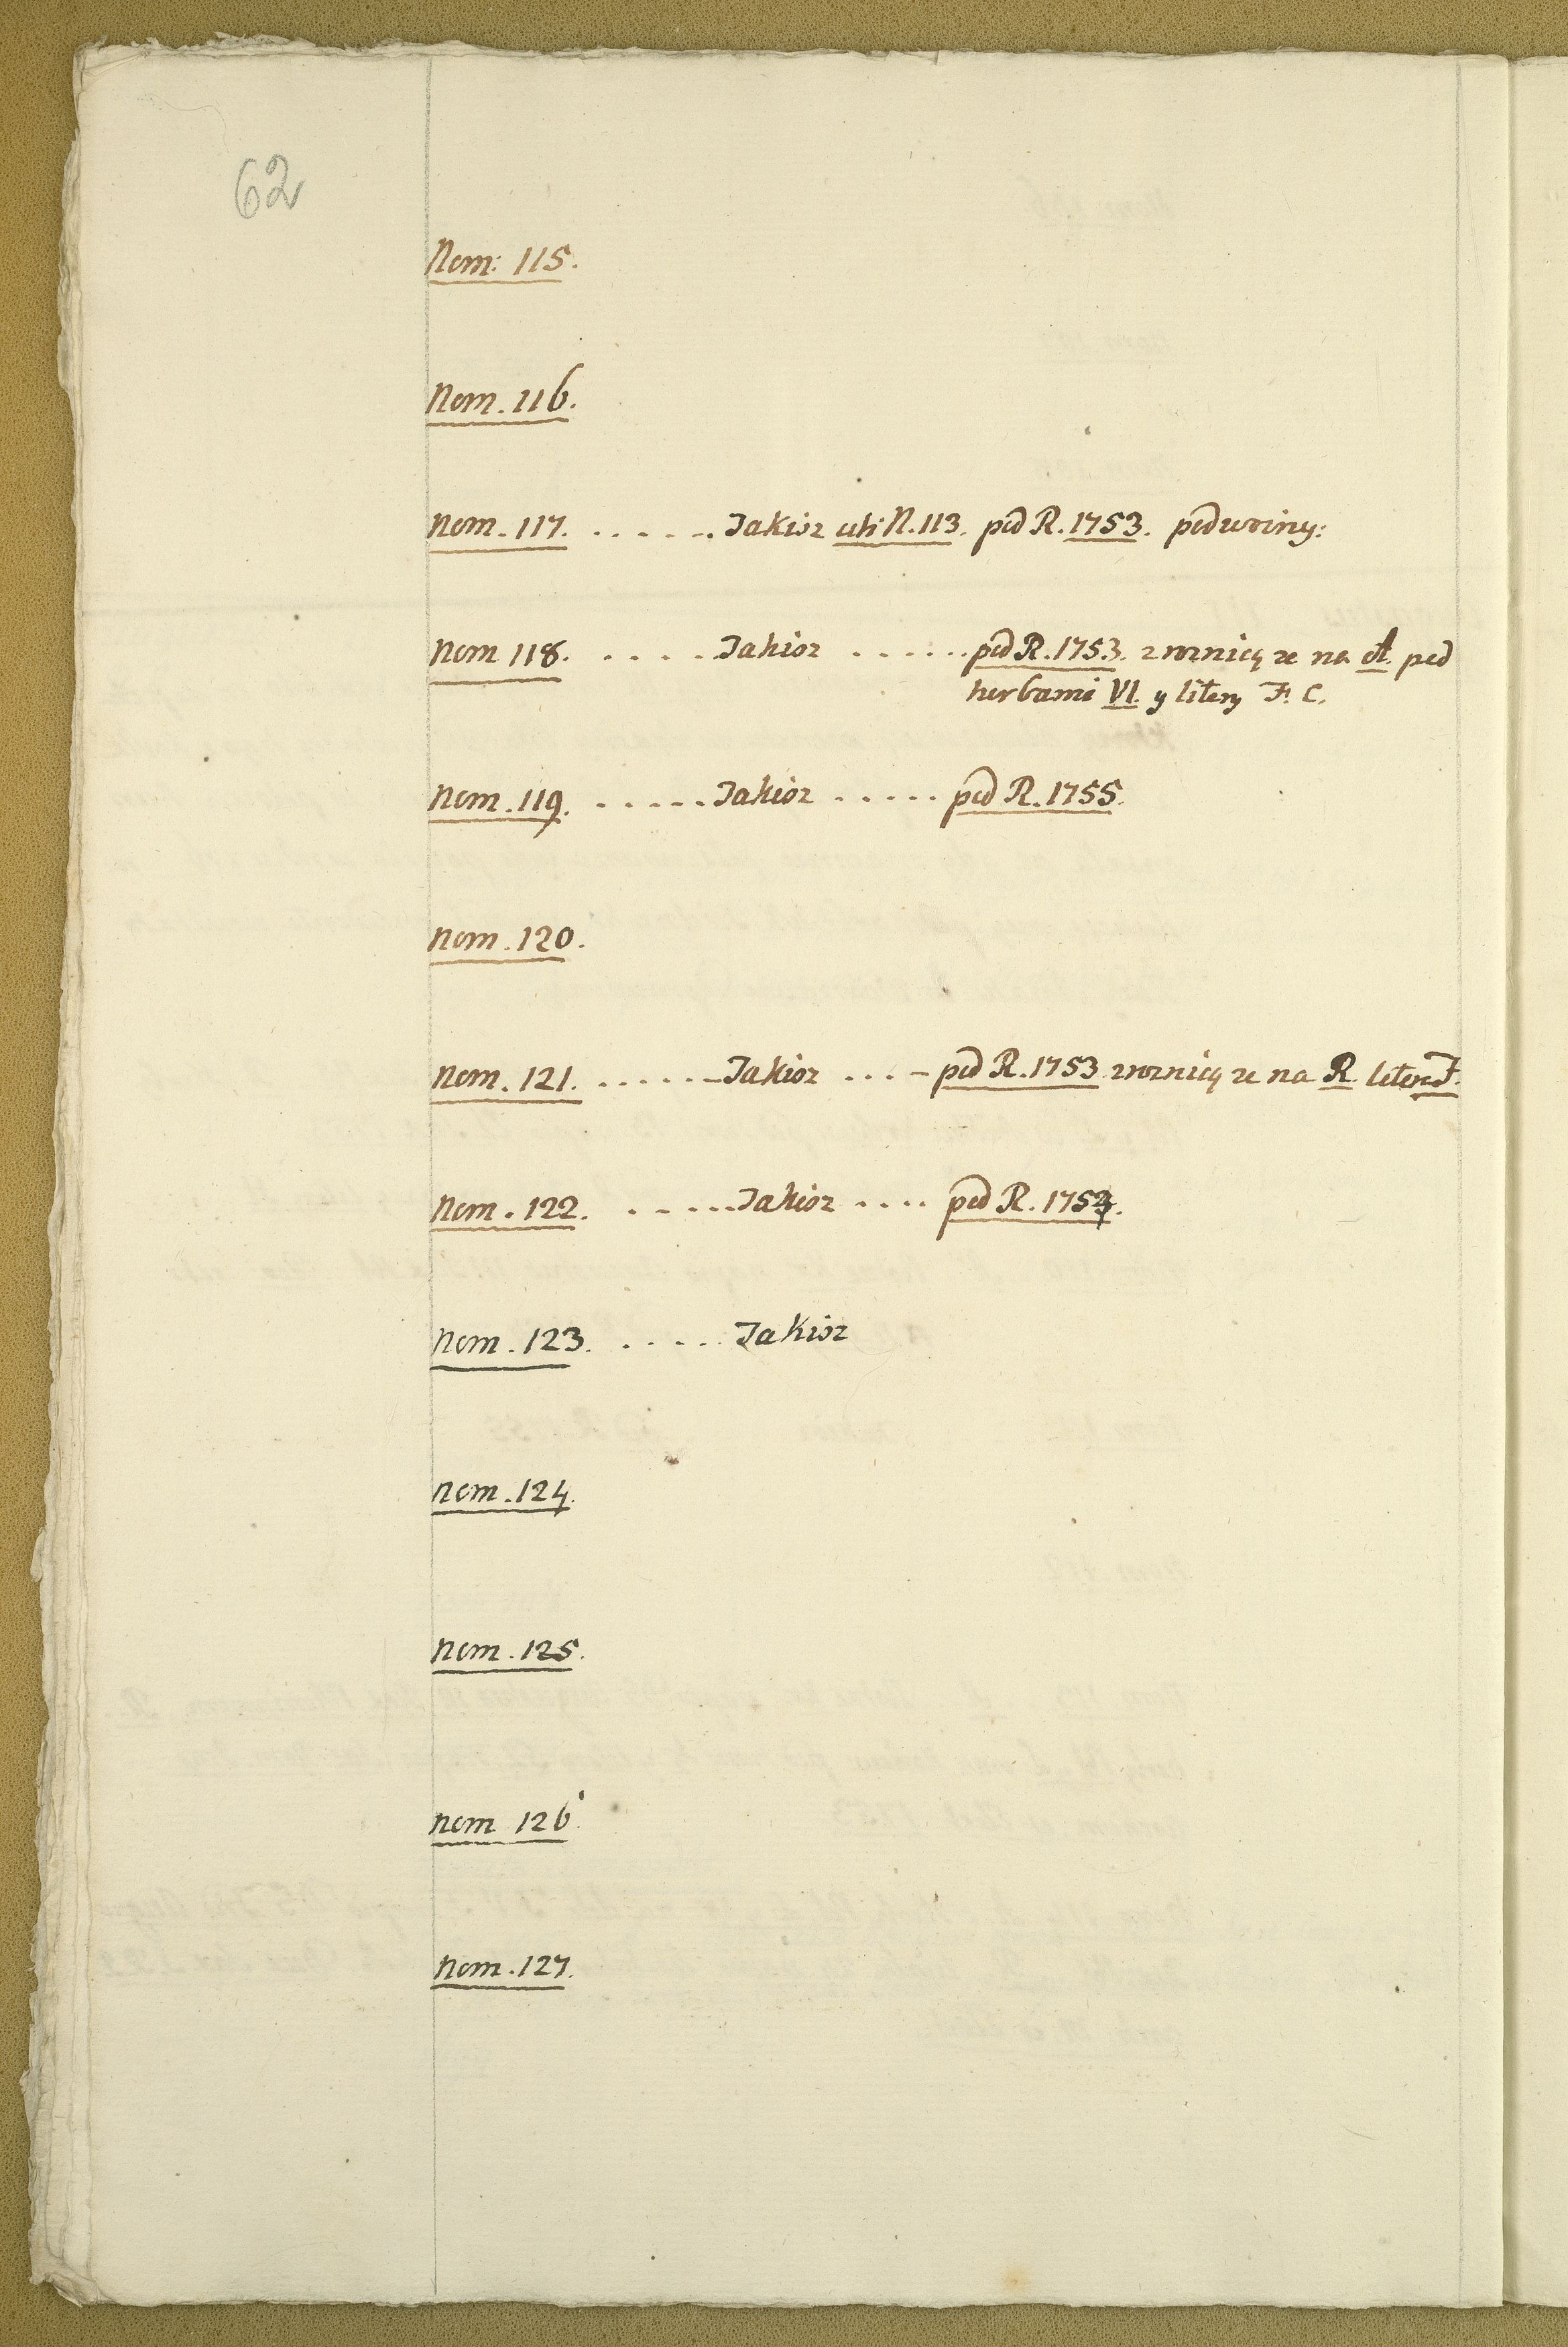 62
Nom: 115.
Nom. 116.
Nom. 117. . . . . . . Jakisz uti N. 113. pod R. 1753. podwoiny:
Nom 118. . . . . . Jakisz . . . . . . pod R. 1753. z roznicą ze na A. pod
herbami VI. y litery F. C.
Nom. 119. . . . . . Jakisz . . . . . pod R. 1755.
Nom. 120.
Nom. 121. . . . . . . Jakisz . . . . pod R. 1753 z roznicą ze na R. litery F.
Nom. 122. . . . . . Jakisz . . . . pod R. 1754.
Nom. 123. . . . . . Jakisz
Nom. 124.
Nom. 125.
Nom 126.
Nom. 127.